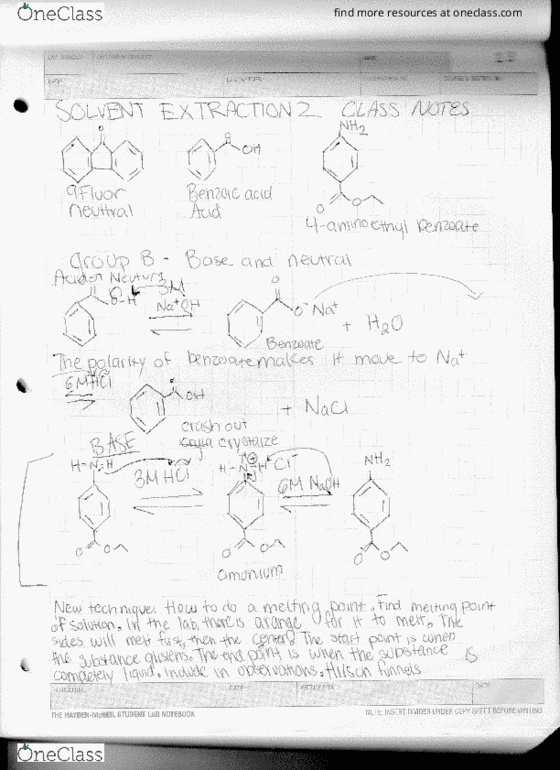 OneClass
find more resources at oneclass.com
SOLVENT EXTRACTION 2 CLASS NOTES
O
OH
NH2
9 Fluor
neutral
Benzoic acid
Acid
O O
4-aminoethyl benzoate
Group B - Base and neutral
Acid or Neutural
O-H
3M
Na+OH
O
O- Na+
+ H2O
Benzoate
The polarity of benzoate makes it move to Na+
6M HCl
OH
+ NaCl
crash out
crystalize
BASE
H-N-H
3M HCl
H-N-H Cl-
6M NaOH
NH2
O O
O O
O O
amonium
New technique: How to do a melting point. Find melting point
of solution. In the lab, there is a range for it to melt. The
sides will melt first, then the center? The start point is when
the substance glistens. The end point is when the substance is
completely liquid. Include in observations. Hirsch funnels
THE HAYDEN-McNEIL STUDENT LAB NOTEBOOK
NOTE: INSERT DIVIDER UNDER COPY SHEET BEFORE WRITING
OneClass